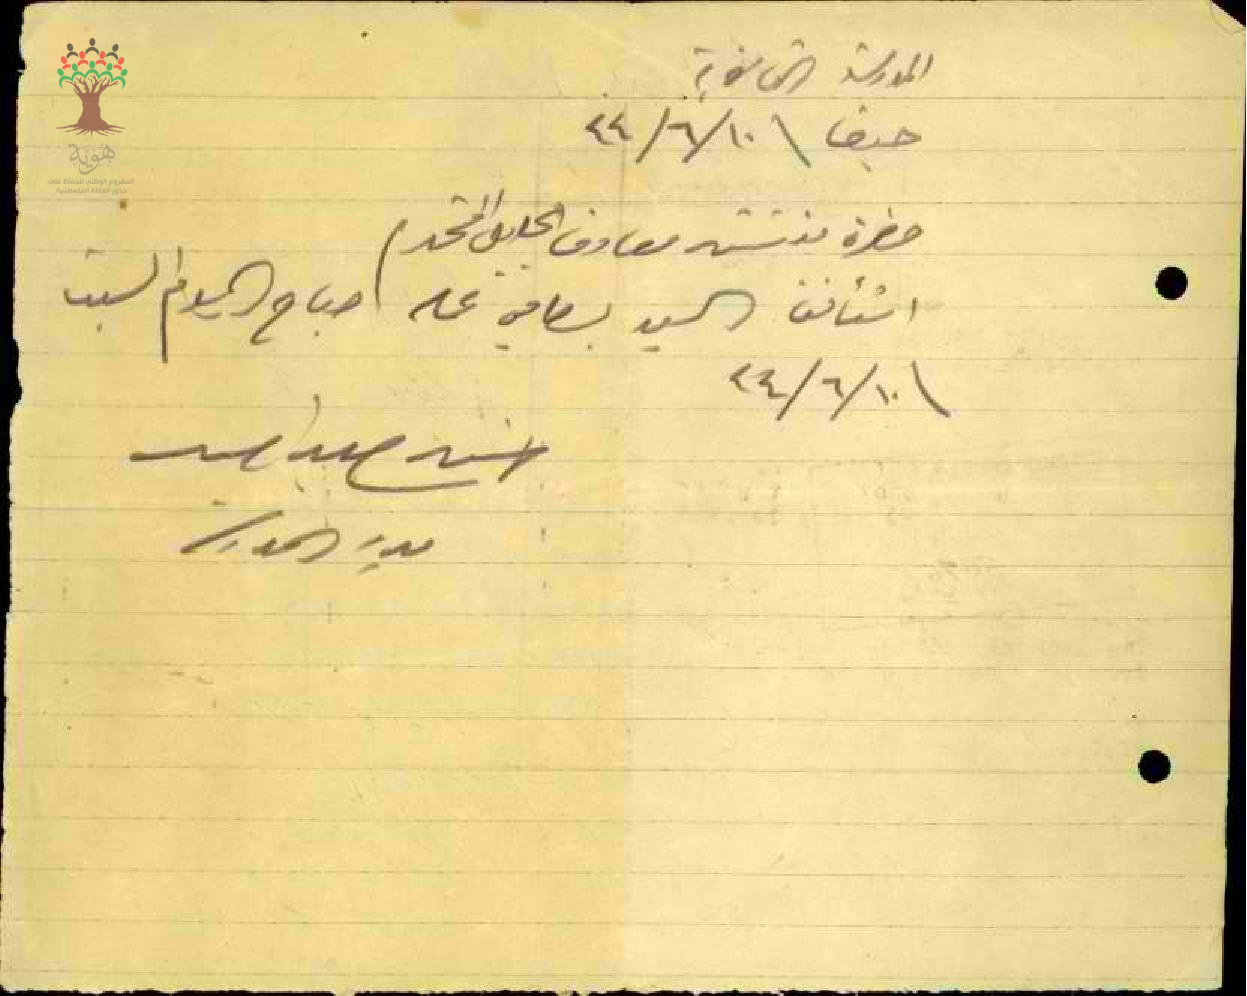 هوية
المشروع الوطني للحفاظ على
جذور العائلة الفلسطينية
المدرسة الثانوية
حيفا \ ١٠/٦/٤٤
حضرة مفتش معارف الجليل المحترم
استأنف السيد عمله صباح اليوم السبت
\ ١٠/٦/٤٤
مدير المدرسة